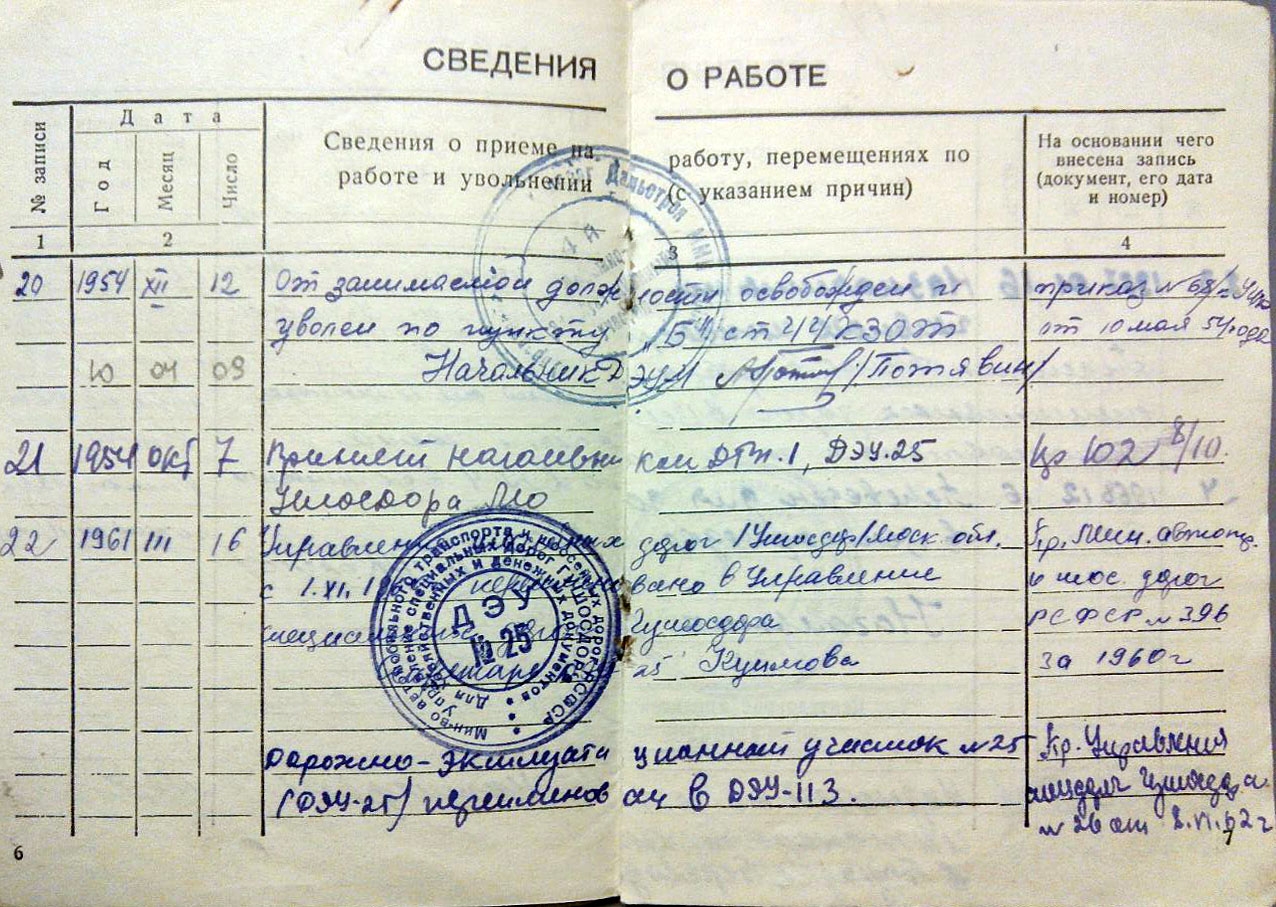 СВЕДЕНИЯ О РАБОТЕ
№ записи
Дата
Год
Месяц
Число
Сведения о приеме на работу, перемещениях по
работе и увольнении (с указанием причин)
На основании чего
внесена запись
(документ, его дата
и номер)
1 2 3 4
20 1954 XII 12 От занимаемой должности освобожден и приказ № 68/
уволен по пункту „Б" ст 44 КЗОТ от 10 мая 54 года
10 04 09 Начальник ДЭУ /Потявин/
21 1954 окт 7 Принят ДРП.1, ДЭУ.25 102 8/10.
Ушосдора МО
22 1961 III 16 Управление дорог /Ушосдор/ Моск. обл. Пр. Мин. автотр.
с 1.XI. в Управление и шос. дорог
Гушосдора РСФСР № 396
25 Куимова за 1960 г
Дорожно-эксплуатационный участок № 25 Пр. Управления
(ДЭУ-25) переименован в ДЭУ-113. Гушосдора
№ 26 от
Дальстроя
Мин-во автомобильного транспорта и шоссейных дорог РСФСР
Управление специальных дорог ГУШОСДОРА
Для хозяйственных и денежных документов
ДЭУ
№ 25
6
7